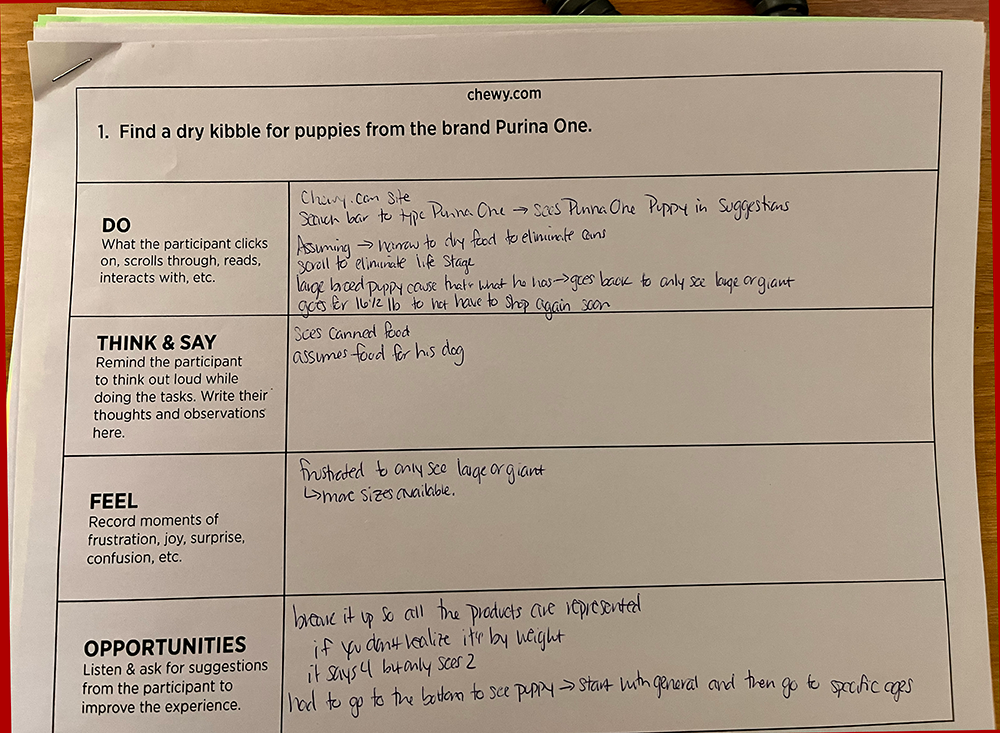 chewy.com
1. Find a dry kibble for puppies from the brand Purina One.
DO
What the participant clicks
on, scrolls through, reads,
interacts with, etc.
Chewy.com site
Search bar to type Purina One → Sees Purina One Puppy in Suggestions
Assuming → narrow to dry food to eliminate cans
scroll to eliminate life stage
large breed puppy cause that's what he has → goes back to only see large or giant
gets for 16 1/2 lb to not have to shop again soon
THINK & SAY
Remind the participant
to think out loud while
doing the tasks. Write their
thoughts and observations
here.
Sees canned food
assumes food for his dog
FEEL
Record moments of
frustration, joy, surprise,
confusion, etc.
frustrated to only see large or giant
↳ more sizes available.
OPPORTUNITIES
Listen & ask for suggestions
from the participant to
improve the experience.
break it up so all the products are represented
if you don't realize it's by weight
it says 4 but only sees 2
had to go to the bottom to see puppy → start with general and then go to specific ages